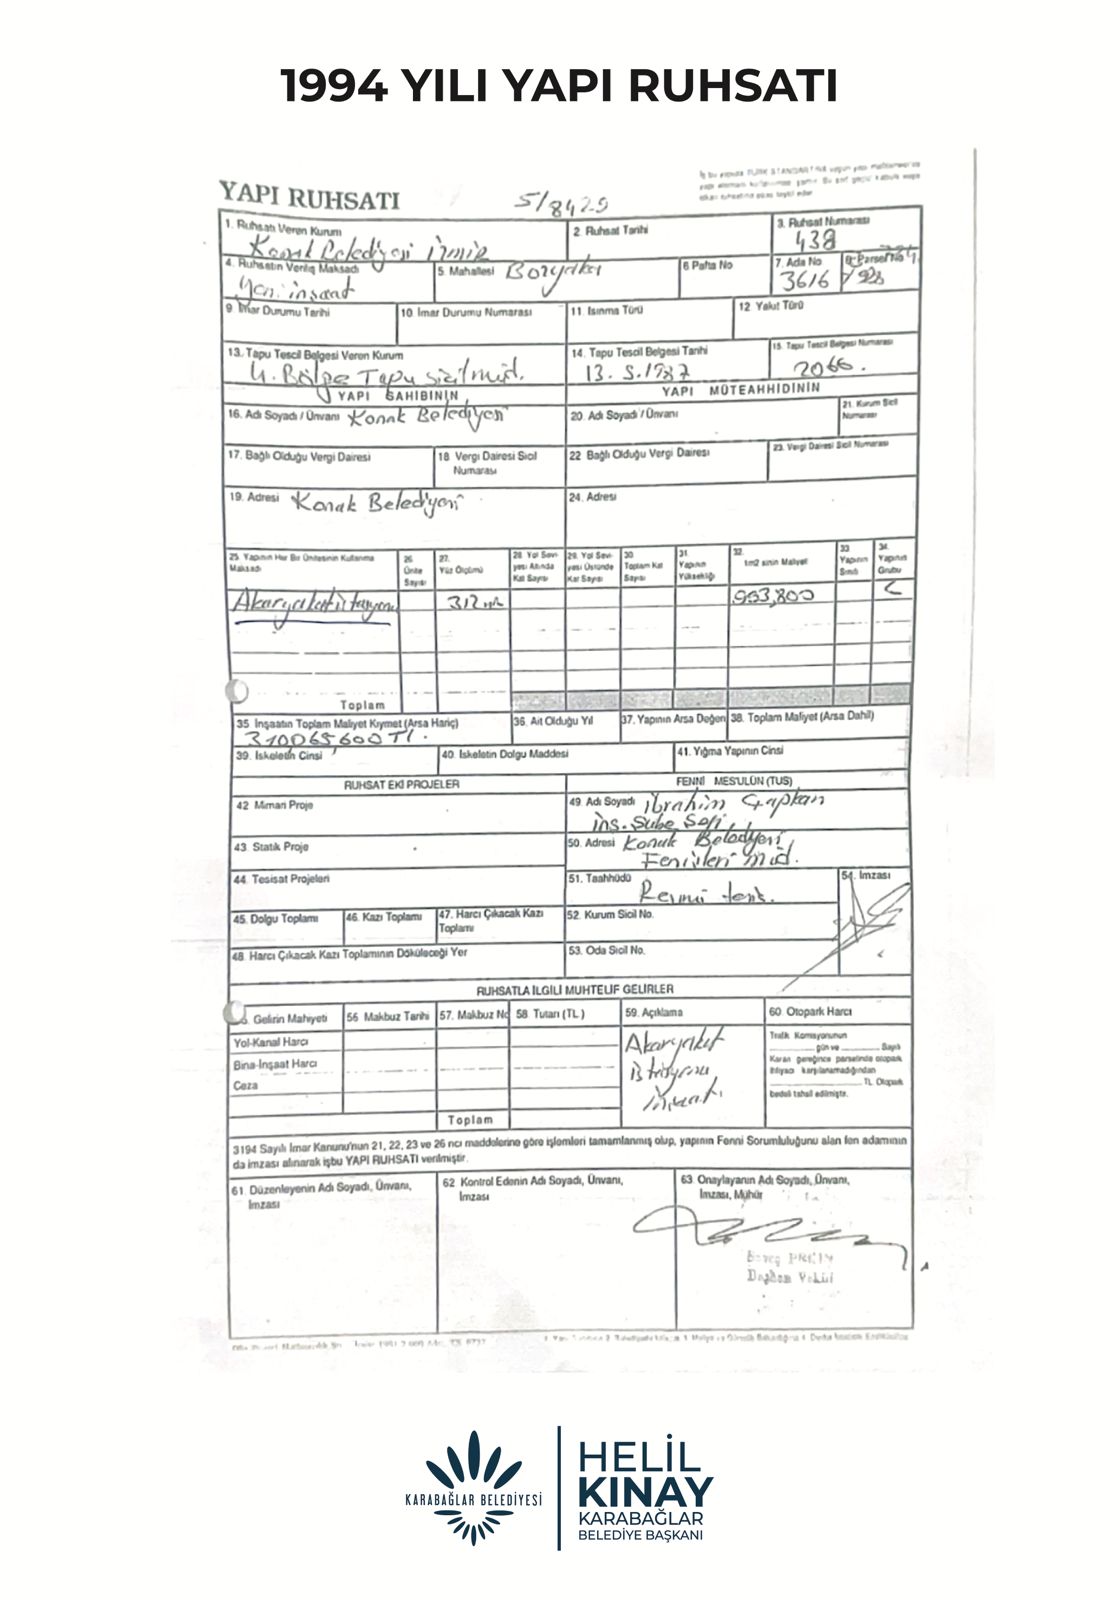 1994 YILI YAPI RUHSATI
YAPI RUHSATI
5/8429
1. Ruhsatı Veren Kurum
Konak Belediyesi İzmir
2. Ruhsat Tarihi
3. Ruhsat Numarası
438
4. Ruhsatın Veriliş Maksadı
Yeni inşaat
5. Mahallesi Bozyaka
6 Pafta No
7. Ada No
3616
8. Parsel No
9. İmar Durumu Tarihi
10. İmar Durumu Numarası
11. Isınma Türü
12 Yakıt Türü
13. Tapu Tescil Belgesi Veren Kurum
4. Bölge Tapu Sicil Müd.
14. Tapu Tescil Belgesi Tarihi
13.5.1987
15. Tapu Tescil Belgesi Numarası
2066.
YAPI SAHİBİNİN
YAPI MÜTEAHHİDİNİN
16. Adı Soyadı / Ünvanı Konak Belediyesi
20. Adı Soyadı / Ünvanı
21. Kurum Sicil Numarası
17. Bağlı Olduğu Vergi Dairesi
18 Vergi Dairesi Sicil Numarası
22 Bağlı Olduğu Vergi Dairesi
23. Vergi Dairesi Sicil Numarası
19. Adresi Konak Belediyesi
24. Adresi
25. Yapının Her Bir Ünitesinin Kullanma Maksadı
26 Ünite Sayısı
27. Yüz Ölçümü
28 Yol Seviyesi Altında Kat Sayısı
29. Yol Seviyesi Üstünde Kat Sayısı
30. Toplam Kat Sayısı
31. Yapının Yüksekliği
32. 1m2 sinin Maliyeti
33 Yapının Sınıfı
34. Yapının Grubu
Akaryakıt istasyonu
312 m2
993,800
C
Toplam
35 İnşaatın Toplam Maliyet Kıymet (Arsa Hariç)
310065600 TL.
36. Ait Olduğu Yıl
37. Yapının Arsa Değeri
38. Toplam Maliyet (Arsa Dahil)
39. İskeletin Cinsi
40. İskeletin Dolgu Maddesi
41. Yığma Yapının Cinsi
RUHSAT EKİ PROJELER
FENNİ MES'ULÜN (TUS)
42 Mimari Proje
49. Adı Soyadı İbrahim Çapkan
İnş. Şube Şefi
43. Statik Proje
50. Adresi Konak Belediyesi
Fen işleri Müd.
44. Tesisat Projeleri
51. Taahhüdü
Resmi
54. İmzası
45. Dolgu Toplamı
46. Kazı Toplamı
47. Harcı Çıkacak Kazı Toplamı
52. Kurum Sicil No.
48. Harcı Çıkacak Kazı Toplamının Döküleceği Yer
53. Oda Sicil No.
RUHSATLA İLGİLİ MUHTELİF GELİRLER
Gelirin Mahiyeti
56 Makbuz Tarihi
57. Makbuz No
58. Tutarı (TL)
59. Açıklama
60. Otopark Harcı
Yol-Kanal Harcı
Bina-İnşaat Harcı
Ceza
Toplam
Akaryakıt
istasyonu
inşaatı
Trafik Komisyonunun
gün ve Sayılı
Kararı gereğince parselinde otopark
ihtiyacı karşılanamadığından
TL Otopark
bedeli tahsil edilmiştir.
3194 Sayılı İmar Kanunu'nun 21, 22, 23 ve 26 ncı maddelerine göre işlemleri tamamlanmış olup, yapının Fenni Sorumluluğunu alan fen adamının
da imzası alınarak işbu YAPI RUHSATI verilmiştir.
61. Düzenleyenin Adı Soyadı, Ünvanı,
İmzası
62 Kontrol Edenin Adı Soyadı, Ünvanı,
İmzası
63 Onaylayanın Adı Soyadı, Ünvanı,
İmzası, Mühür
KARABAĞLAR BELEDİYESİ
HELİL
KINAY
KARABAĞLAR
BELEDİYE BAŞKANI